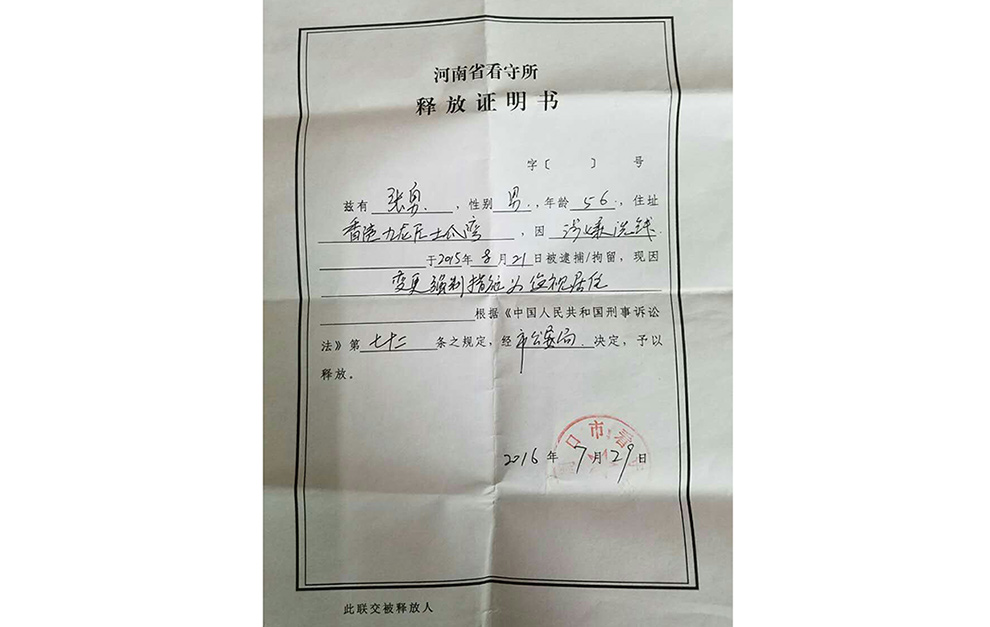 河南省看守所
释放证明书
字〔 〕 号
兹有 张勇 ,性别 男 ,年龄 56 ,住址
香港九龙区土瓜湾 ,因 涉嫌洗钱
于2015年8月21日被逮捕/拘留,现因
变更强制措施为监视居住
根据《中国人民共和国刑事诉讼
法》第 七十二 条之规定,经 市公安局 决定,予以
释放。
口市看
2016年7月29日
此联交被释放人